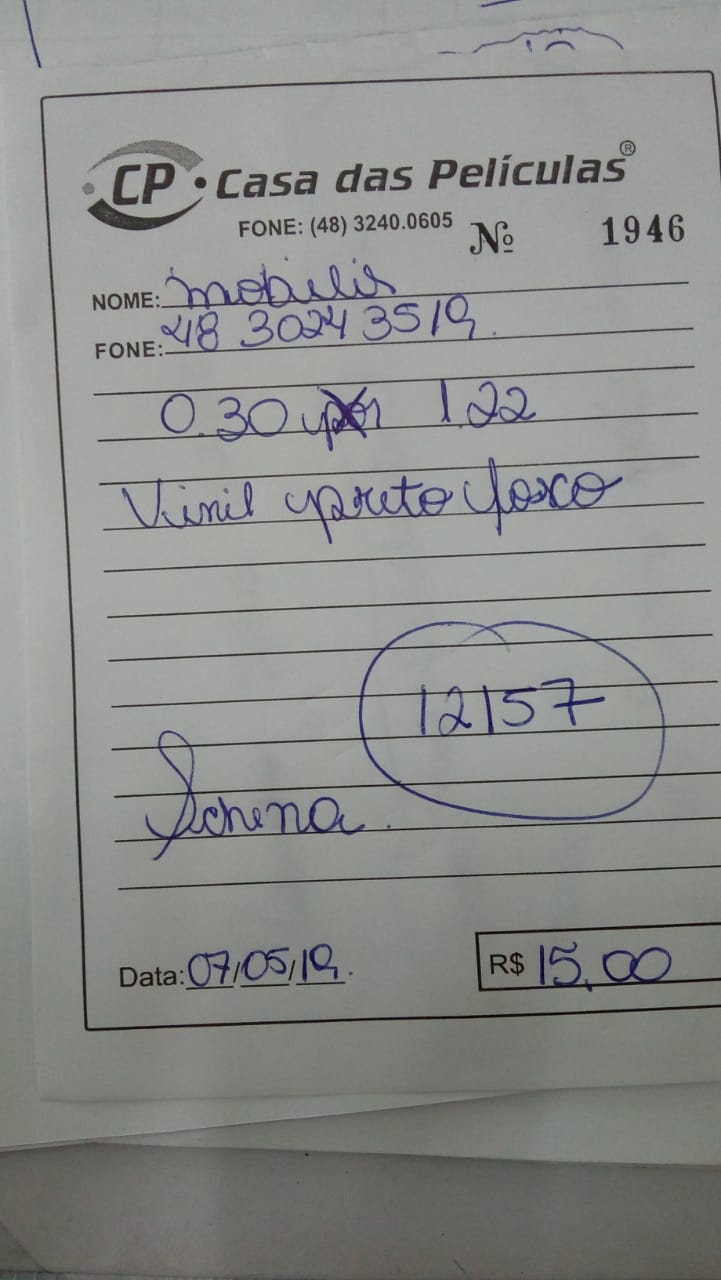 CP • Casa das Películas®
FONE: (48) 3240.0605 Nº 1946
NOME: Mobilis
FONE: 48 3024 3519.
0.30 por 1.22
Vinil preto fosco
12157
Schena.
Data: 07/05/19.
R$ 15,00